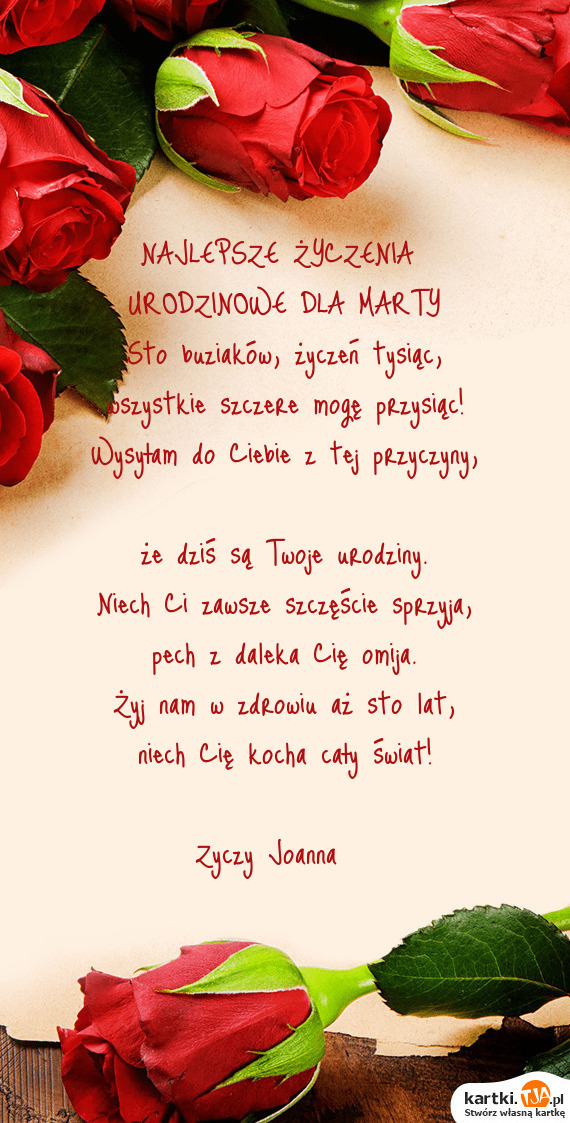 NAJLEPSZE ŻYCZENIA
URODZINOWE DLA MARTY
Sto buziaków, życzeń tysiąc,
wszystkie szczere mogę przysiąc!
Wysyłam do Ciebie z tej przyczyny,
że dziś są Twoje urodziny.
Niech Ci zawsze szczęście sprzyja,
pech z daleka Cię omija.
Żyj nam w zdrowiu aż sto lat,
niech Cię kocha cały świat!
Zyczy Joanna
kartki.TJA.pl
Stwórz własną kartkę